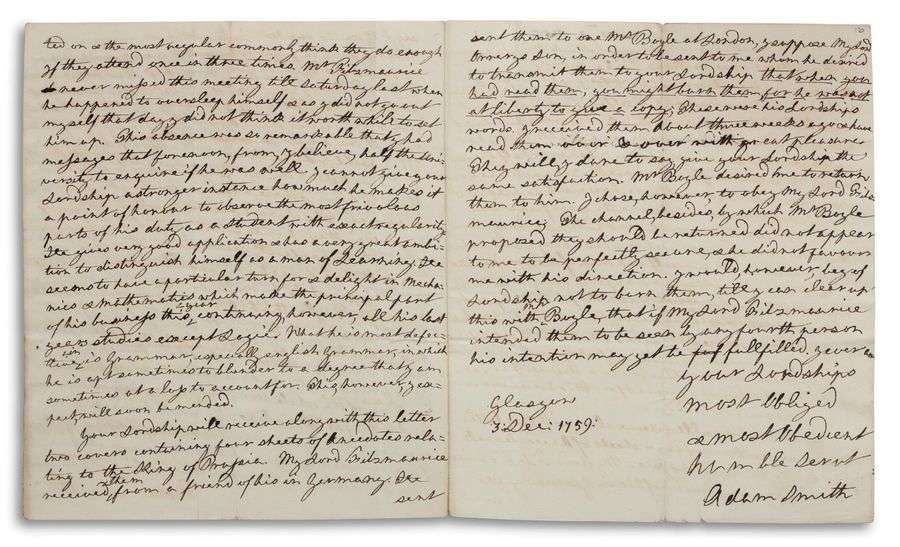 ted on & the most regular commonly think they do enough
if they attend once in three times. Mr Fitzmaurice
never missed this meeting till Saturday last when
he happened to oversleep himself & as I did not go out
myself that day I did not think it worth while to call
him up. This absence was so remarkable that I had
messages that forenoon, from, I believe, half the Uni-
versity to enquire if he was well. I cannot give your
Lordship a stronger instance how much he makes it
a point of honour to observe the most frivolous
parts of his duty as a student with exact regularity.
He gives very good application & has a very great ambi-
tion to distinguish himself as a man of Learning. He
seems to have a particular turn for & delight in Mecha-
nics & Mathematics which make the principal part
of his business this year, continuing, however, all his last
years studies except Logic. What he is most defec-
tive in is Grammar, especially english Grammar, in which
he is apt sometimes to blunder to a degree that I am
sometimes at a loss to account for. This, however, I ex-
pect, will soon be mended.
Your Lordship will receive along with this letter
two covers containing four sheets of Anecdotes rela-
ting to the King of Prussia. My Lord Fitzmaurice
received them from a friend of his in Germany. He
sent
sent them to one Mr Boyle at London, I suppose My Lord
Orrerys Son, in order to be sent to me whom he desired
to transmit them to your Lordship that when you
had read them, you might burn them for he was not
at liberty to give a copy; These were his Lordships
words. I received them about three weeks ago & have
read them over & over with great pleasure.
They will, I dare to say, give your Lordship the
same satisfaction. Mr Boyle desired me to return
them to him. I chose, however, to obey My Lord Fitz-
maurice; The channel, besides, by which Mr Boyle
proposed they should be returned did not appear
to me to be perfectly secure, & he did not favour
me with his direction. I would, however, beg of
Lordship not to burn them, till I can clear up
this with Mr Boyle, that if My Lord Fitzmaurice
intended them to be seen by any fourth person
his intention may yet be fulfilled. I ever am
Your Lordships
Most Obliged
& most Obedient
humble servt
Adam Smith
Glasgow
3. Dec: 1759.